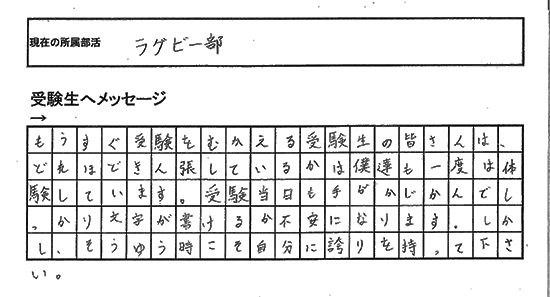 現在の所属部活 ラグビー部
受験生へメッセージ
→
もうすぐ受験をむかえる受験生の皆さんは、
どれほどきん張しているかは僕達も一度は体
験しています。受験当日も手がかじかんでし
っかり文字が書けるか不安になります。しか
し、そうゆう時こそ自分に誇りを持って下さ
い。